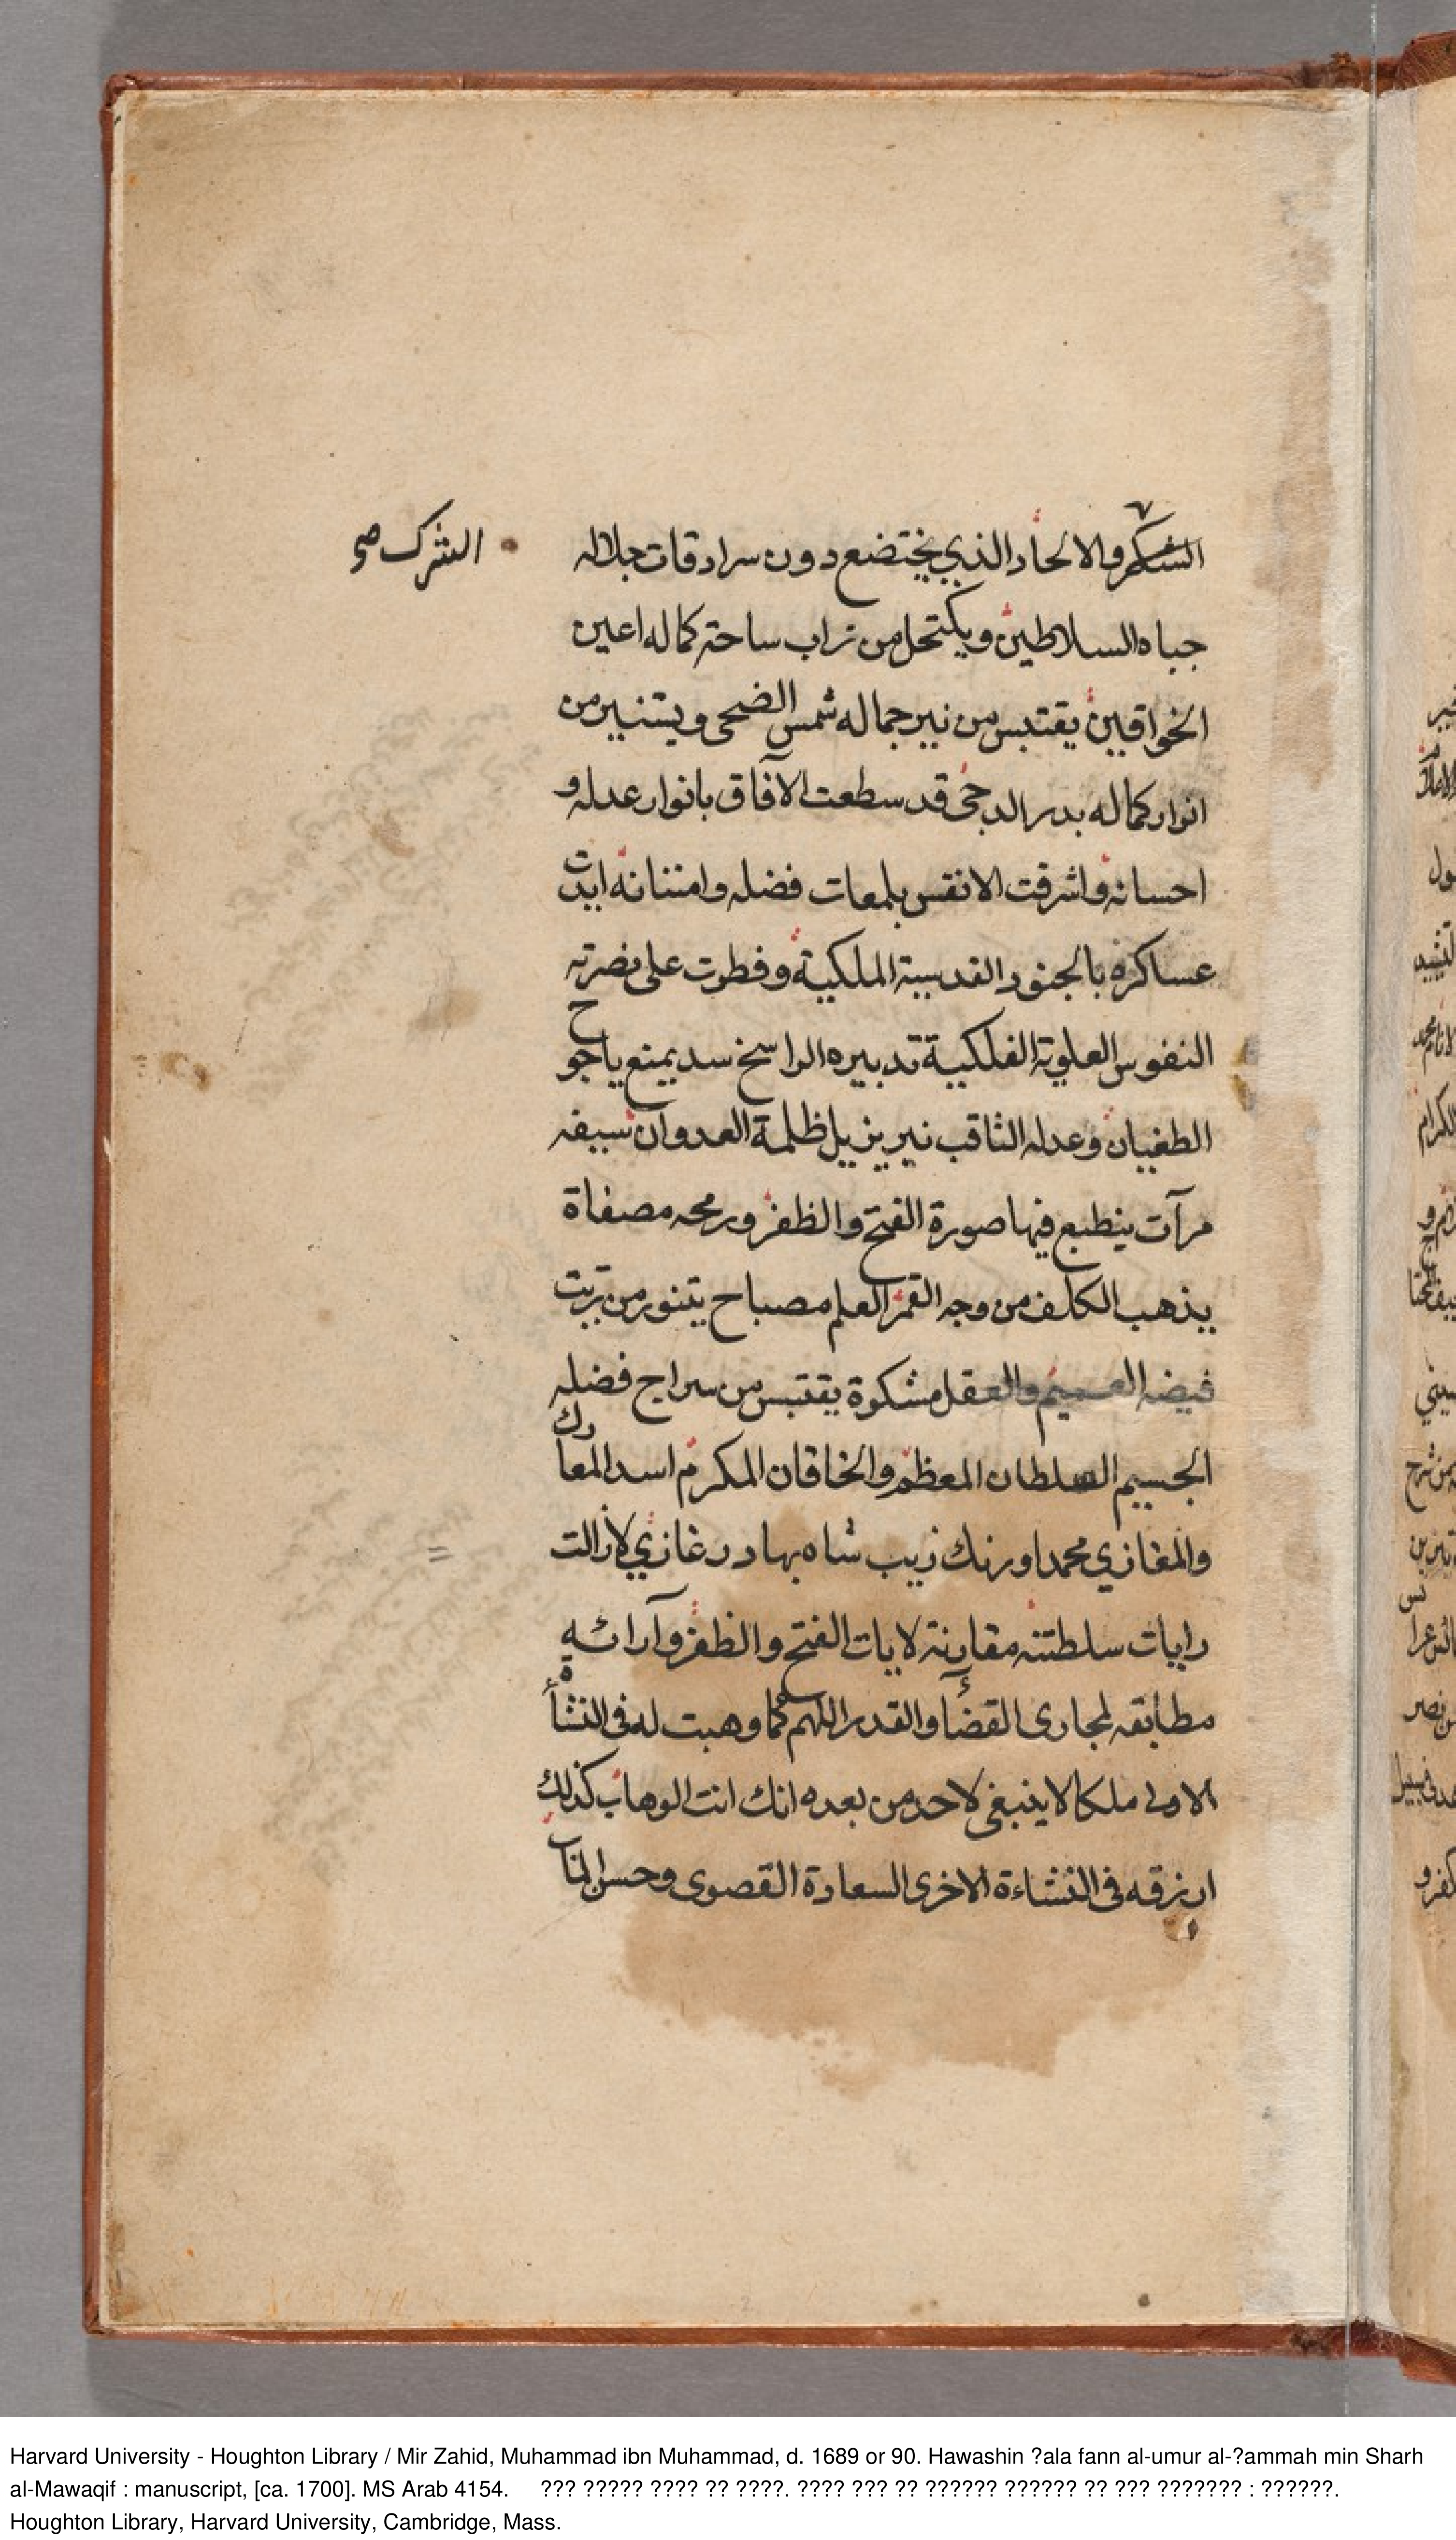 السكر والالحاد الذي يختضع دون سرادقات جلاله
الشرك صح
جباه السلاطين ويكتحل من تراب ساحته كماله اعين
الخواقين يقتبس من نير جماله شمس الضحى ويستنير من
انوار كماله بدر الدجى قد سطعت الآفاق بانوار عدله و
احسانه واشرقت الانفس بلمعات فضله وامتنانه ايدت
عساكره بالجنود القدسية الملكية وفطرت على نصرته
النفوس العلوية الفلكية تدبيره الراسخ سد يمنع ياجوج
الطغيان وعدله الثاقب نير يزيل ظلمة العدوان سيفه
مرآت ينطبع فيها صورة الفتح والظفر ورمحه مصفاة
يذهب الكلف من وجه القمر العلم مصباح يتنور من تربت
فيضه العميم والعقل مشكوة يقتبس من سراج فضله
الجسيم السلطان المعظم والخاقان المكرم اسد المعارك
والمغازي محمد اورنك زيب شاه بهادر غازي لازالت
رايات سلطتنه مقارنة لايات الفتح والظفر وآرائه
مطابقه لمجارى القضاء والقدر اللهم كما وهبت له فى النشأة
الاولى ملكا لا ينبغى لاحد من بعده انك انت الوهاب كذلك
ارزقه فى النشاءة الاخرى السعادة القصوى وحسن المآب
Harvard University - Houghton Library / Mir Zahid, Muhammad ibn Muhammad, d. 1689 or 90. Hawashin ?ala fann al-umur al-?ammah min Sharh
al-Mawaqif : manuscript, [ca. 1700]. MS Arab 4154. ??? ????? ???? ?? ????. ???? ??? ?? ?????? ?????? ?? ??? ??????? : ??????.
Houghton Library, Harvard University, Cambridge, Mass.